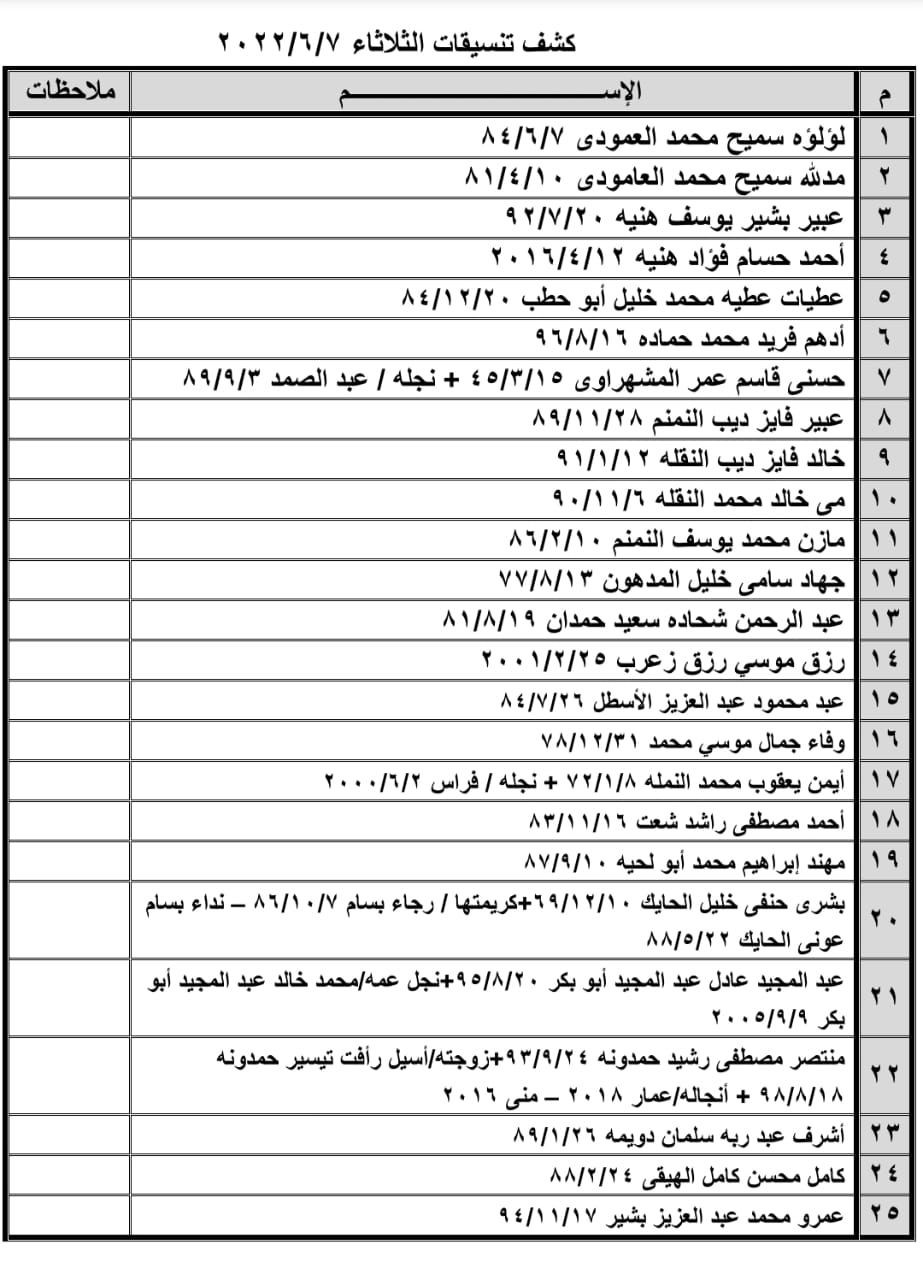 كشف تنسيقات الثلاثاء ٢٠٢٢/٦/٧
م الإســـــــــــــم ملاحظات
١ لؤلؤه سميح محمد العمودى ٨٤/٦/٧
٢ مدلله سميح محمد العامودى ٨١/٤/١٠
٣ عبير بشير يوسف هنيه ٩٢/٧/٢٠
٤ أحمد حسام فؤاد هنيه ٢٠١٦/٤/١٢
٥ عطيات عطيه محمد خليل أبو حطب ٨٤/١٢/٢٠
٦ أدهم فريد محمد حماده ٩٦/٨/١٦
٧ حسنى قاسم عمر المشهراوى ٤٥/٣/١٥ + نجله / عبد الصمد ٨٩/٩/٣
٨ عبير فايز ديب النمنم ٨٩/١١/٢٨
٩ خالد فايز ديب النقله ٩١/١/١٢
١٠ مى خالد محمد النقله ٩٠/١١/٦
١١ مازن محمد يوسف النمنم ٨٦/٢/١٠
١٢ جهاد سامى خليل المدهون ٧٧/٨/١٣
١٣ عبد الرحمن شحاده سعيد حمدان ٨١/٨/١٩
١٤ رزق موسي رزق زعرب ٢٠٠١/٢/٢٥
١٥ عبد محمود عبد العزيز الأسطل ٨٤/٧/٢٦
١٦ وفاء جمال موسي محمد ٧٨/١٢/٣١
١٧ أيمن يعقوب محمد النمله ٧٢/١/٨ + نجله / فراس ٢٠٠٠/٦/٢
١٨ أحمد مصطفى راشد شعت ٨٣/١١/١٦
١٩ مهند إبراهيم محمد أبو لحيه ٨٧/٩/١٠
٢٠ بشرى حنفى خليل الحايك ٦٩/١٢/١٠+كريمتها / رجاء بسام ٨٦/١٠/٧ – نداء بسام
عونى الحايك ٨٨/٥/٢٢
٢١ عبد المجيد عادل عبد المجيد أبو بكر ٩٥/٨/٢٠+نجل عمه/محمد خالد عبد المجيد أبو
بكر ٢٠٠٥/٩/٩
٢٢ منتصر مصطفى رشيد حمدونه ٩٣/٩/٢٤+زوجته/أسيل رأفت تيسير حمدونه
٩٨/٨/١٨ + أنجاله/عمار ٢٠١٨ – منى ٢٠١٦
٢٣ أشرف عبد ربه سلمان دويمه ٨٩/١/٢٦
٢٤ كامل محسن كامل الهيقى ٨٨/٢/٢٤
٢٥ عمرو محمد عبد العزيز بشير ٩٤/١١/١٧